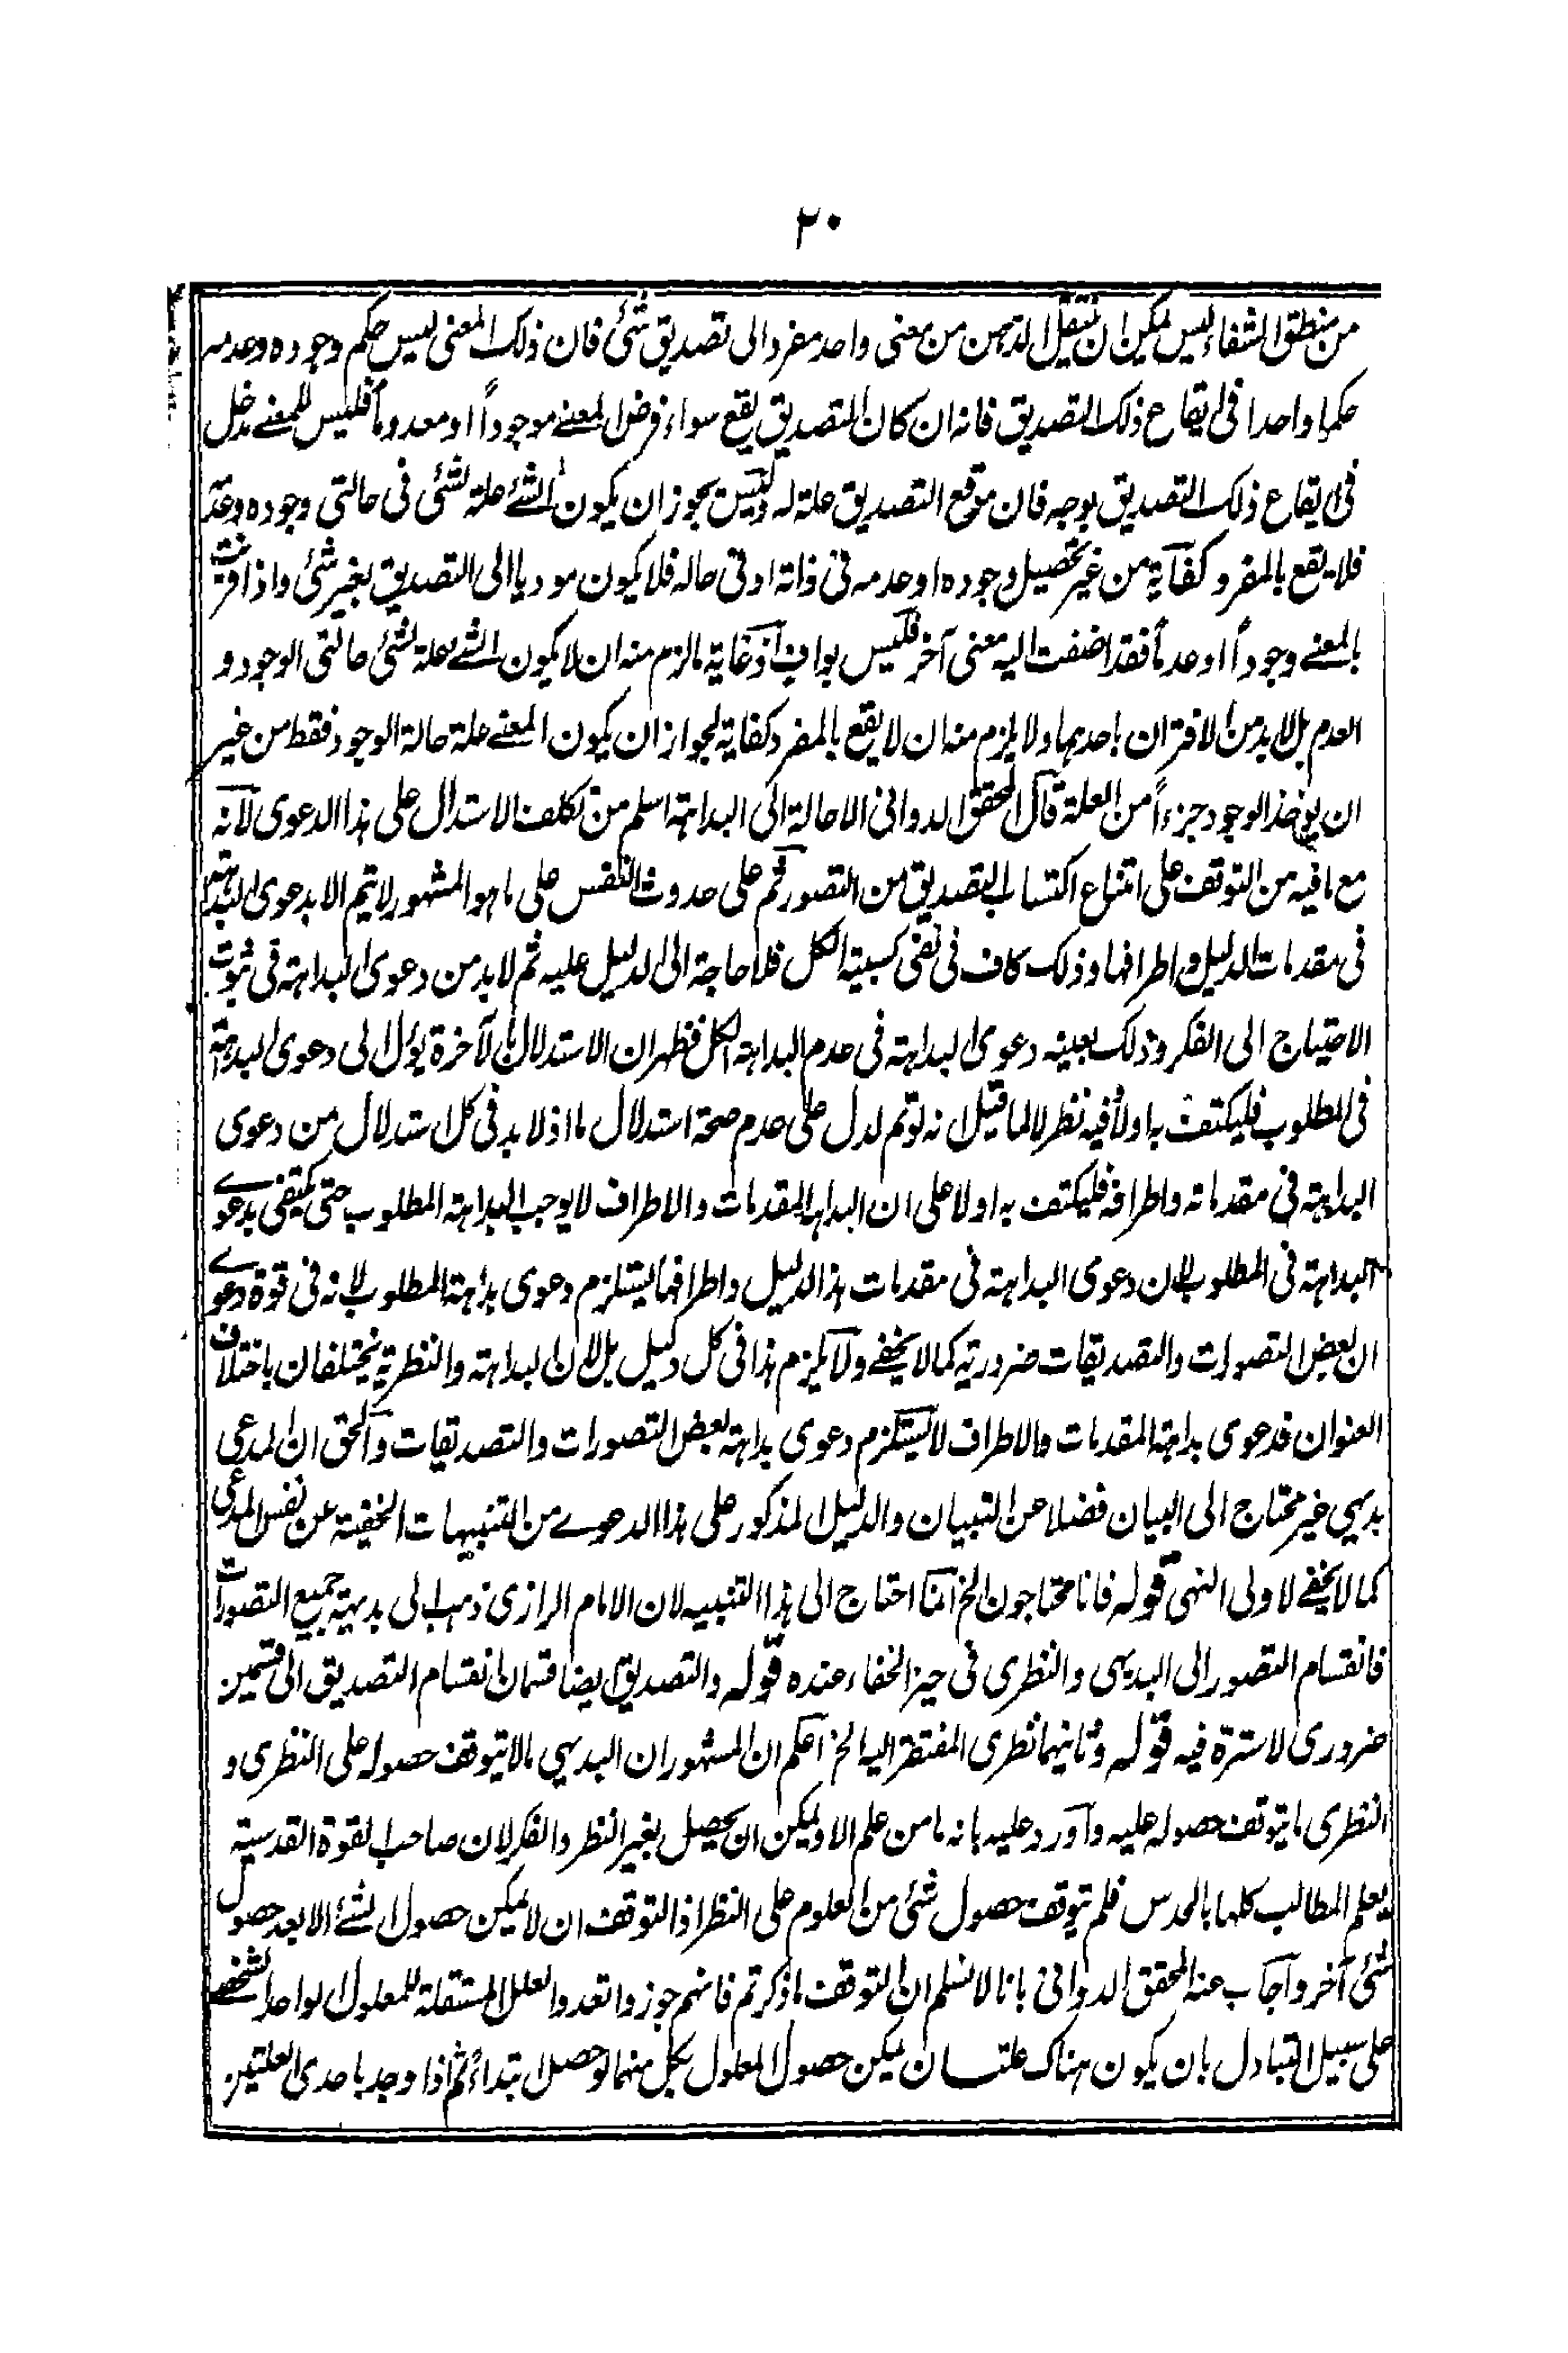 ٢٠
من منطق الشفاء ليس يمكن ان ينتقل الذهن من معنى واحد مفرد الى تصديق شئ فان ذلك المعنى ليس حكم وجوده وعدمه
حكما واحدا فى ايقاع ذلك التصديق فانه ان كان التصديق يقع سواء فرض المعنے موجوداً او معدوماً فليس للمعنے مدخل
فى ايقاع ذلك التصديق بوجه فان موقع التصديق علة له وليس يجوز ان يكون الشئے علة لشئ فى حالتى وجوده وعدمه
فلا يقع بالمفرد كفاية من غير تحصيل وجوده او عدمه فى ذاته او فى حاله فلا يكون موديا الى التصديق بغير شئ واذا قرنت
بالمعنے وجوداً او عدماً فقد اضفت اليه معنى آخر فليس بواف اذ غاية ما لزم منه ان لا يكون الشئے علة لشئ حالتى الوجود و
العدم بل لا بد من الاقتران باحدهما ولا يلزم منه ان لا يقع بالمفرد كفاية لجواز ان يكون المعنے علة حالة الوجود فقط من غير
ان يوخذ الوجود جزءاً من العلة قال المحقق الدوانى الاحالة الى البداهة اسلم من تكلف الاستدلال على هذا الدعوى لانه
مع ما فيه من التوقف على امتناع اكتساب التصديق من التصور ثم على حدوث النفس على ما هو المشهور لا يتم الا بدعوى البداهة
فى مقدمات الدليل واطرافها وذلك كاف فى نفى كسبية الكل فلا حاجة الى الدليل عليه ثم لا بد من دعوى البداهة فى ثبوت
الاحتياج الى الفكر وذلك بعينه دعوى البداهة فى عدم البداهة الكل فظهر ان الاستدلال بالآخرة يؤل الى دعوى البداهة
فى المطلوب فليكتف به اولاً فيه نظر لا لما قيل انه لو تم لدل على عدم صحة استدلال ما اذ لا بد فى كل استدلال من دعوى
البداهة فى مقدماته واطرافه فليكتف به اولا على ان البداهة المقدمات والاطراف لا يوجب البداهة المطلوب حتى يكتفى بدعوے
البداهة فى المطلوب لان دعوى البداهة فى مقدمات هذا الدليل واطرافها يستلزم دعوى بداهة المطلوب لانه فى قوة دعوے
ان بعض التصورات والتصديقات ضرورية كما لا يخفے ولا يلزم هذا فى كل دليل بل لان البداهة والنظرية يختلفان باختلاف
العنوان فدعوى بداهة المقدمات والاطراف لا يستلزم دعوى بداهة بعض التصورات والتصديقات والحق ان المدعى
بديهي غير محتاج الى البيان فضلا عن التبيان والدليل المذكور على هذا الدعوے من التنبيهات الخفية عن نفس المدعى
كما لا يخفے لاولى النهى قوله فانا محتاجون الخ انما احتاج الى هذا التنبيه لان الامام الرازى ذهب الى بديهية جميع التصورات
فانقسام التصور الى البديهى والنظرى فى حيز الخفاء عنده قوله والتصديق ايضا قسمان انقسام التصديق الى قسمين
ضرورى لا سترة فيه قوله وثانيهما نظرى المفتقر اليه الخ اعلم ان المشهور ان البديهي ما لا يتوقف حصوله على النظرى و
النظرى ما يتوقف حصوله عليه واورد عليه بانه ما من علم الا ويمكن ان يحصل بغير النظر والفكر لان صاحب القوة القدسية
يعلم المطالب كلها بالحدس فلم يتوقف حصول شئ من العلوم على النظر اذ التوقف ان لا يمكن حصول الشئے الا بعد حصول
شئ آخر واجاب عنه المحقق الدوانى بانا لا نسلم ان التوقف ما ذكرتم فانهم جوزوا تعدد العلل المستقلة للمعلول الواحد الشخصے
على سبيل التبادل بان يكون هناك علتان يمكن حصول المعلول بكل منهما لو حصل ابتداءً ثم اذا وجد باحدى العلتين